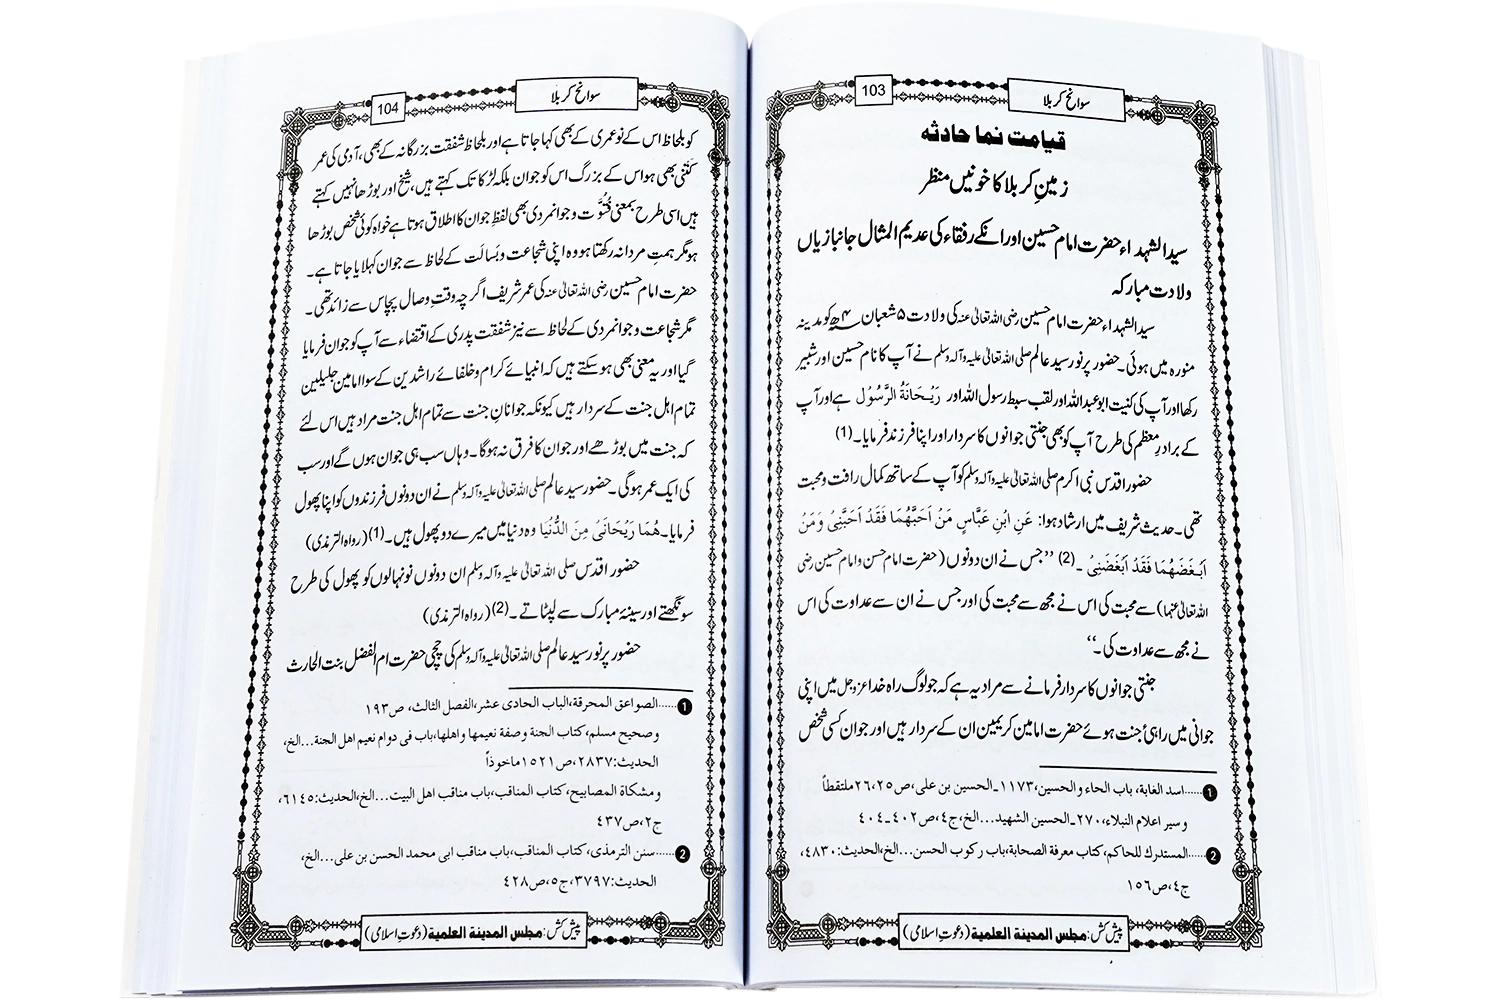 103
سوانح کربلا
قیامت نما حادثہ
زمینِ کربلا کا خونیں منظر
سید الشہداء حضرت امام حسین اور انکے رفقاء کی عدیم المثال جانبازیاں
ولادت مبارکہ
سید الشہداء حضرت امام حسین رضی اللہ تعالیٰ عنہ کی ولادت ۵ شعبان ۴ھ کو مدینہ
منورہ میں ہوئی۔ حضور پرنور سید عالم صلی اللہ تعالیٰ علیہ وآلہ وسلم نے آپ کا نام حسین اور شبیر
رکھا اور آپ کی کنیت ابو عبد اللہ اور لقب سبط رسول اللہ اور رَیْحَانَۃُ الرَّسُوْل ہے اور آپ
کے برادرِ معظم کی طرح آپ کو بھی جنتی جوانوں کا سردار اور اپنا فرزند فرمایا۔ (1)
حضور اقدس نبی اکرم صلی اللہ تعالیٰ علیہ وآلہ وسلم کو آپ کے ساتھ کمال رافت ومحبت
تھی۔ حدیث شریف میں ارشاد ہوا: عَنِ ابْنِ عَبَّاسٍ مَنْ اَحَبَّهُمَا فَقَدْ اَحَبَّنِیْ وَمَنْ
اَبْغَضَهُمَا فَقَدْ اَبْغَضَنِیْ ۔ (2) ”جس نے ان دونوں (حضرت امام حسن و امام حسین رضی
اللہ تعالیٰ عنہما) سے محبت کی اس نے مجھ سے محبت کی اور جس نے ان سے عداوت کی اس
نے مجھ سے عداوت کی۔“
جنتی جوانوں کا سردار فرمانے سے مراد یہ ہے کہ جو لوگ راہ خدا عزوجل میں اپنی
جوانی میں راہیٔ جنت ہوئے حضرت امامین کریمین ان کے سردار ہیں اور جوان کسی شخص
1……اسد الغابة، باب الحاء والحسین، ۱۱۷۳۔الحسین بن علی، ص۲۵، ۲۶ملتقطاً
وسیر اعلام النبلاء، ۲۷۰۔الحسین الشهید…الخ، ج٤، ص٤٠٢۔٤٠٤
2……المستدرك للحاكم، كتاب معرفة الصحابة، باب ركوب الحسن…الخ، الحدیث:٤٨٣٠،
ج٤، ص١٥٦
پیش کش: مجلس المدینة العلمیة (دعوتِ اسلامی)
104
سوانح کربلا
کو بلحاظ اس کے نوعمری کے بھی کہا جاتا ہے اور بلحاظ شفقت بزرگانہ کے بھی، آدمی کی عمر
کتنی بھی ہو اس کے بزرگ اس کو جوان بلکہ لڑکا تک کہتے ہیں، شیخ اور بوڑھا نہیں کہتے
ہیں اسی طرح بمعنی فُتُوَّت و جوانمردی بھی لفظِ جوان کا اطلاق ہوتا ہے خواہ کوئی شخص بوڑھا
ہو مگر ہمتِ مردانہ رکھتا ہو وہ اپنی شجاعت و بسالت کے لحاظ سے جوان کہلایا جاتا ہے۔
حضرت امام حسین رضی اللہ تعالیٰ عنہ کی عمر شریف اگرچہ وقتِ وصال پچاس سے زائد تھی۔
مگر شجاعت و جوانمردی کے لحاظ سے نیز شفقت پدری کے اقتضاء سے آپ کو جوان فرمایا
گیا اور یہ معنی بھی ہو سکتے ہیں کہ انبیائے کرام و خلفائے راشدین کے سوا امامین جلیلین
تمام اہل جنت کے سردار ہیں کیونکہ جوانانِ جنت سے تمام اہل جنت مراد ہیں اس لئے
کہ جنت میں بوڑھے اور جوان کا فرق نہ ہوگا۔ وہاں سب ہی جوان ہوں گے اور سب
کی ایک عمر ہوگی۔ حضور سید عالم صلی اللہ تعالیٰ علیہ وآلہ وسلم نے ان دونوں فرزندوں کو اپنا پھول
فرمایا۔ هُمَا رَیْحَانَیْ مِنَ الدُّنْیَا وہ دنیا میں میرے دو پھول ہیں۔ (1) (رواہ الترمذی)
حضور اقدس صلی اللہ تعالیٰ علیہ وآلہ وسلم ان دونوں نونہالوں کو پھول کی طرح
سونگھتے اور سینۂ مبارک سے لپٹاتے۔ (2) (رواہ الترمذی)
حضور پرنور سید عالم صلی اللہ تعالیٰ علیہ وآلہ وسلم کی چچی حضرت ام الفضل بنت الحارث
1……الصواعق المحرقة، الباب الحادی عشر، الفصل الثالث، ص۱۹۳
وصحیح مسلم، كتاب الجنة وصفة نعیمها واهلها، باب فی دوام نعیم اهل الجنة…الخ،
الحدیث:۲۸۳۷، ص۱۵۲۱ماخوذاً
ومشكاة المصابیح، كتاب المناقب، باب مناقب اهل البیت…الخ، الحدیث:٦١٤٥،
ج۲، ص٤٣٧
2……سنن الترمذی، كتاب المناقب، باب مناقب ابی محمد الحسن بن علی…الخ،
الحدیث:۳۷۹۷، ج۵، ص٤٢٨
پیش کش: مجلس المدینة العلمیة (دعوتِ اسلامی)